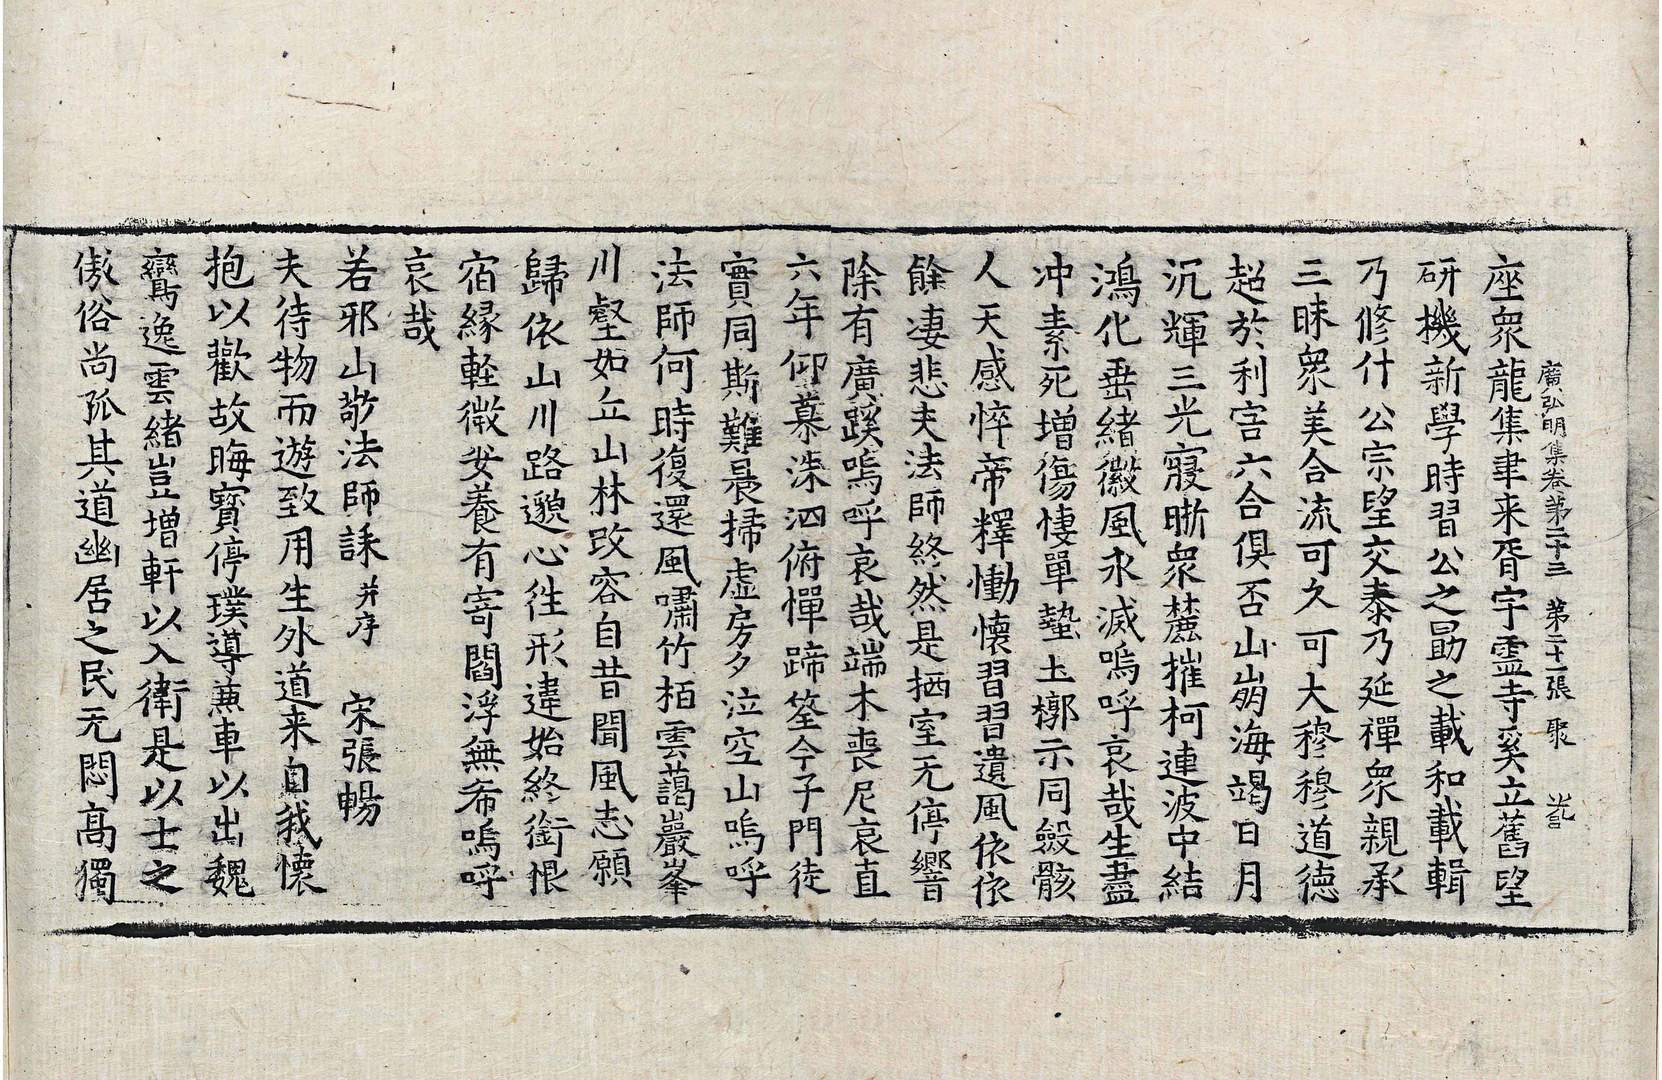 廣弘明集卷第二十三　第二十一張　聚
座衆龍集聿来胥宇靈寺奚立舊望
研機新學時習公之勗之載和載輯
乃修什公宗望交泰乃延禪衆親承
三昧衆美合流可久可大穆穆道德
超於利害六合俱否山崩海竭日月
沉輝三光寢晰衆麓摧柯連波中結
鴻化垂緒徽風永滅嗚呼哀哉生盡
冲素死增傷悽單蟄土槨示同斂骸
人天感悴帝釋慟懷習習遺風依依
餘淒悲夫法師終然是栖室无停響
除有廣蹊嗚呼哀哉端木喪尼哀直
六年仰慕洙泗俯憚蹄筌今子門徒
實同斯難晨掃虛房夕泣空山嗚呼
法師何時復還風嘯竹栢雲藹巖峯
川壑如丘山林改容自昔聞風志願
歸依山川路邈心往形違始終銜恨
宿緣輕微安養有寄閻浮無希嗚呼
哀哉
若邪山敬法師誄并序　宋張暢
夫待物而遊致用生外道来自我懷
抱以歡故晦寶停璞導薰車以出魏
鸞逸雲緒豈增軒以入衛是以士之
傲俗尚孤其道幽居之民无悶高獨